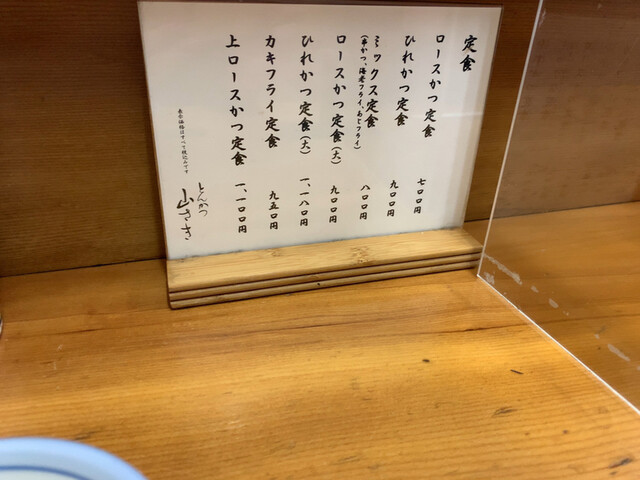 定食
ロースかつ定食 七〇〇円
ひれかつ定食 九〇〇円
ミックス定食 八〇〇円
(串かつ、海老フライ、あじフライ)
ロースかつ定食(大) 九〇〇円
ひれかつ定食(大) 一、一八〇円
カキフライ定食 九五〇円
上ロースかつ定食 一、一〇〇円
表示価格はすべて税込みです
とんかつ
山さき